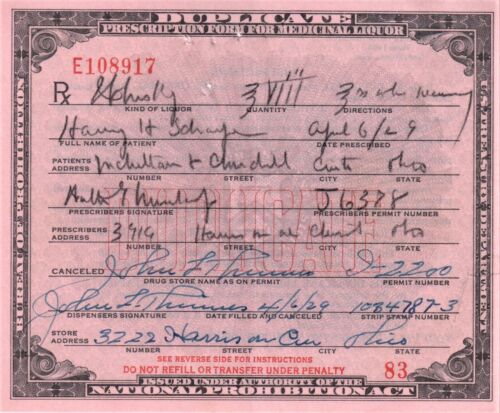 DUPLICATE
PRESCRIPTION FORM FOR MEDICINAL LIQUOR
E108917
Rx Whisky ʒVIII
KIND OF LIQUOR QUANTITY DIRECTIONS
Harry H April 6/29
FULL NAME OF PATIENT DATE PRESCRIBED
PATIENTS ADDRESS McMillan & Ohio
NUMBER STREET CITY STATE
J6388
PRESCRIBERS SIGNATURE PRESCRIBERS PERMIT NUMBER
PRESCRIBERS ADDRESS Ohio
NUMBER STREET CITY STATE
CANCELED John I-2200
DRUG STORE NAME AS ON PERMIT PERMIT NUMBER
John 4/6/29 1084787-3
DISPENSERS SIGNATURE DATE FILLED AND CANCELED STRIP STAMP NUMBER
STORE ADDRESS 3222 Harrison Ohio
NUMBER STREET CITY STATE
SEE REVERSE SIDE FOR INSTRUCTIONS
DO NOT REFILL OR TRANSFER UNDER PENALTY 83
ISSUED UNDER AUTHORITY OF THE
NATIONAL PROHIBITION ACT
BUREAU OF PROHIBITION
U.S. TREASURY DEPARTMENT
DUPLICATE